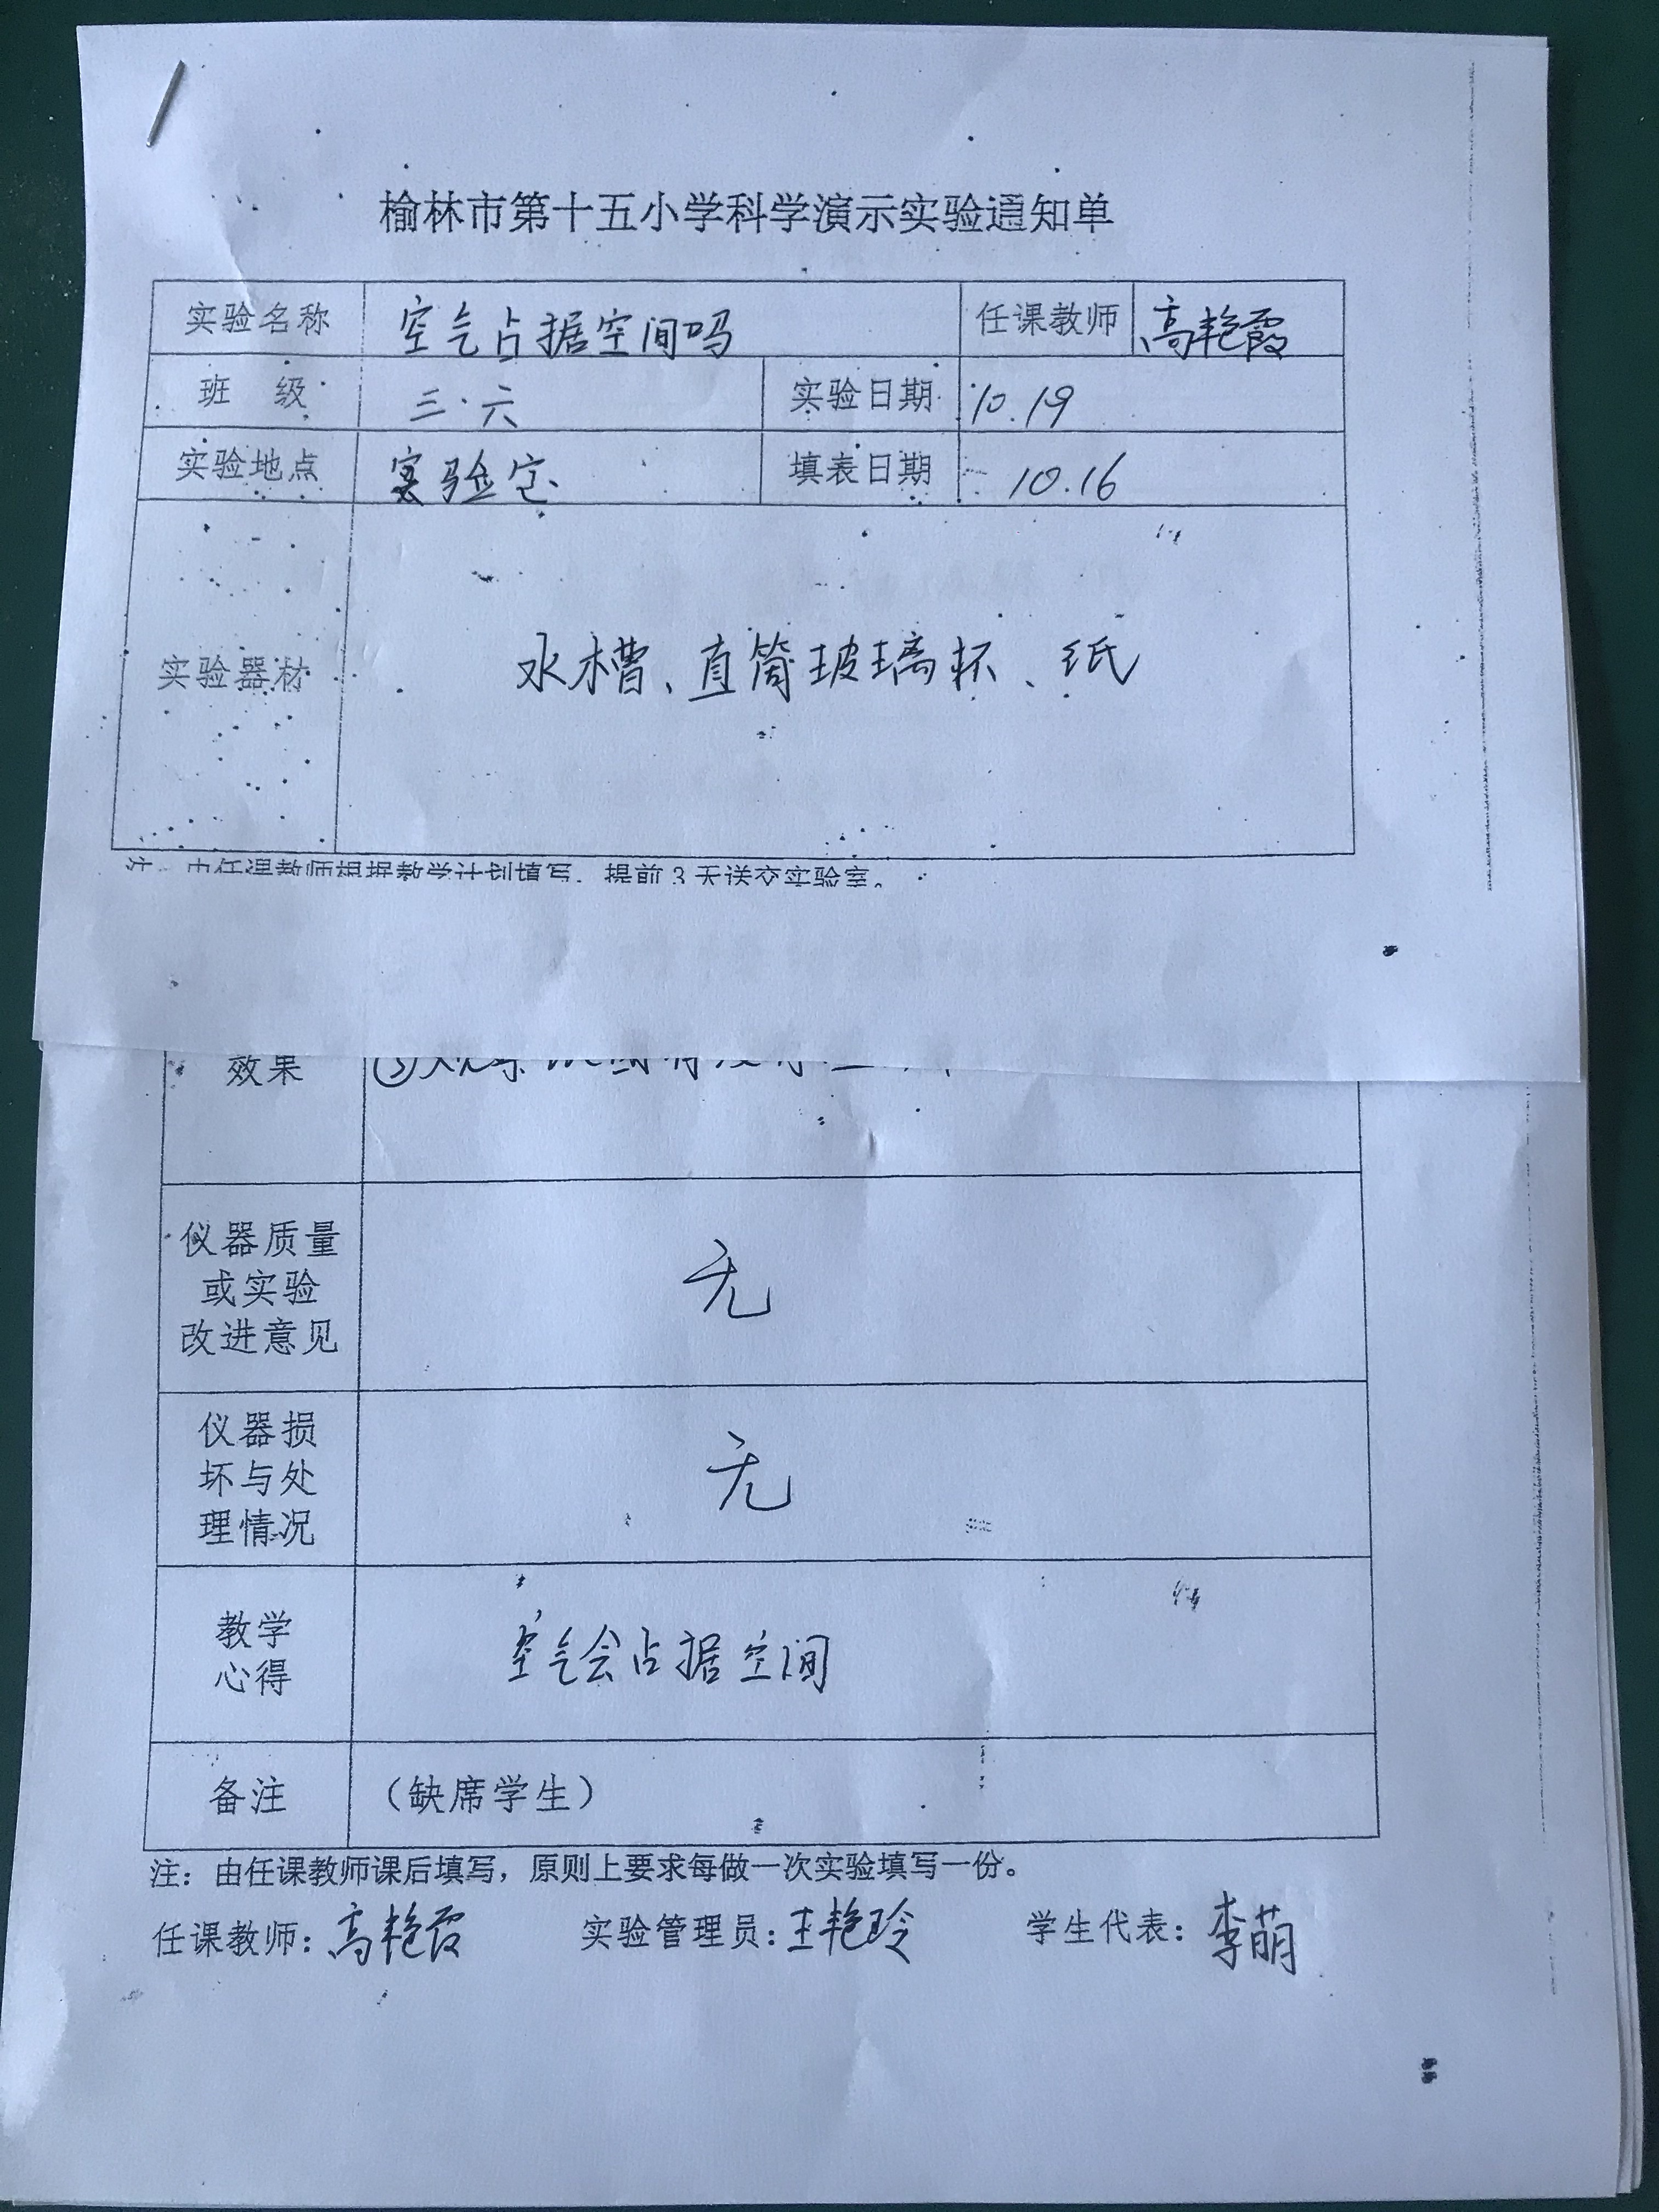 榆林市第十五小学科学演示实验通知单
实验名称 空气占据空间吗 任课教师 高艳霞
班 级 三·六 实验日期 10.19
实验地点 实验室 填表日期 10.16
实验器材 水槽、直筒玻璃杯、纸
由任课教师根据教学计划填写，提前3天送交实验室。
效果
仪器质量
或实验
改进意见
无
仪器损
坏与处
理情况
无
教学
心得
空气会占据空间
备注 （缺席学生）
注：由任课教师课后填写，原则上要求每做一次实验填写一份。
任课教师：高艳霞 实验管理员：王艳玲 学生代表：李萌